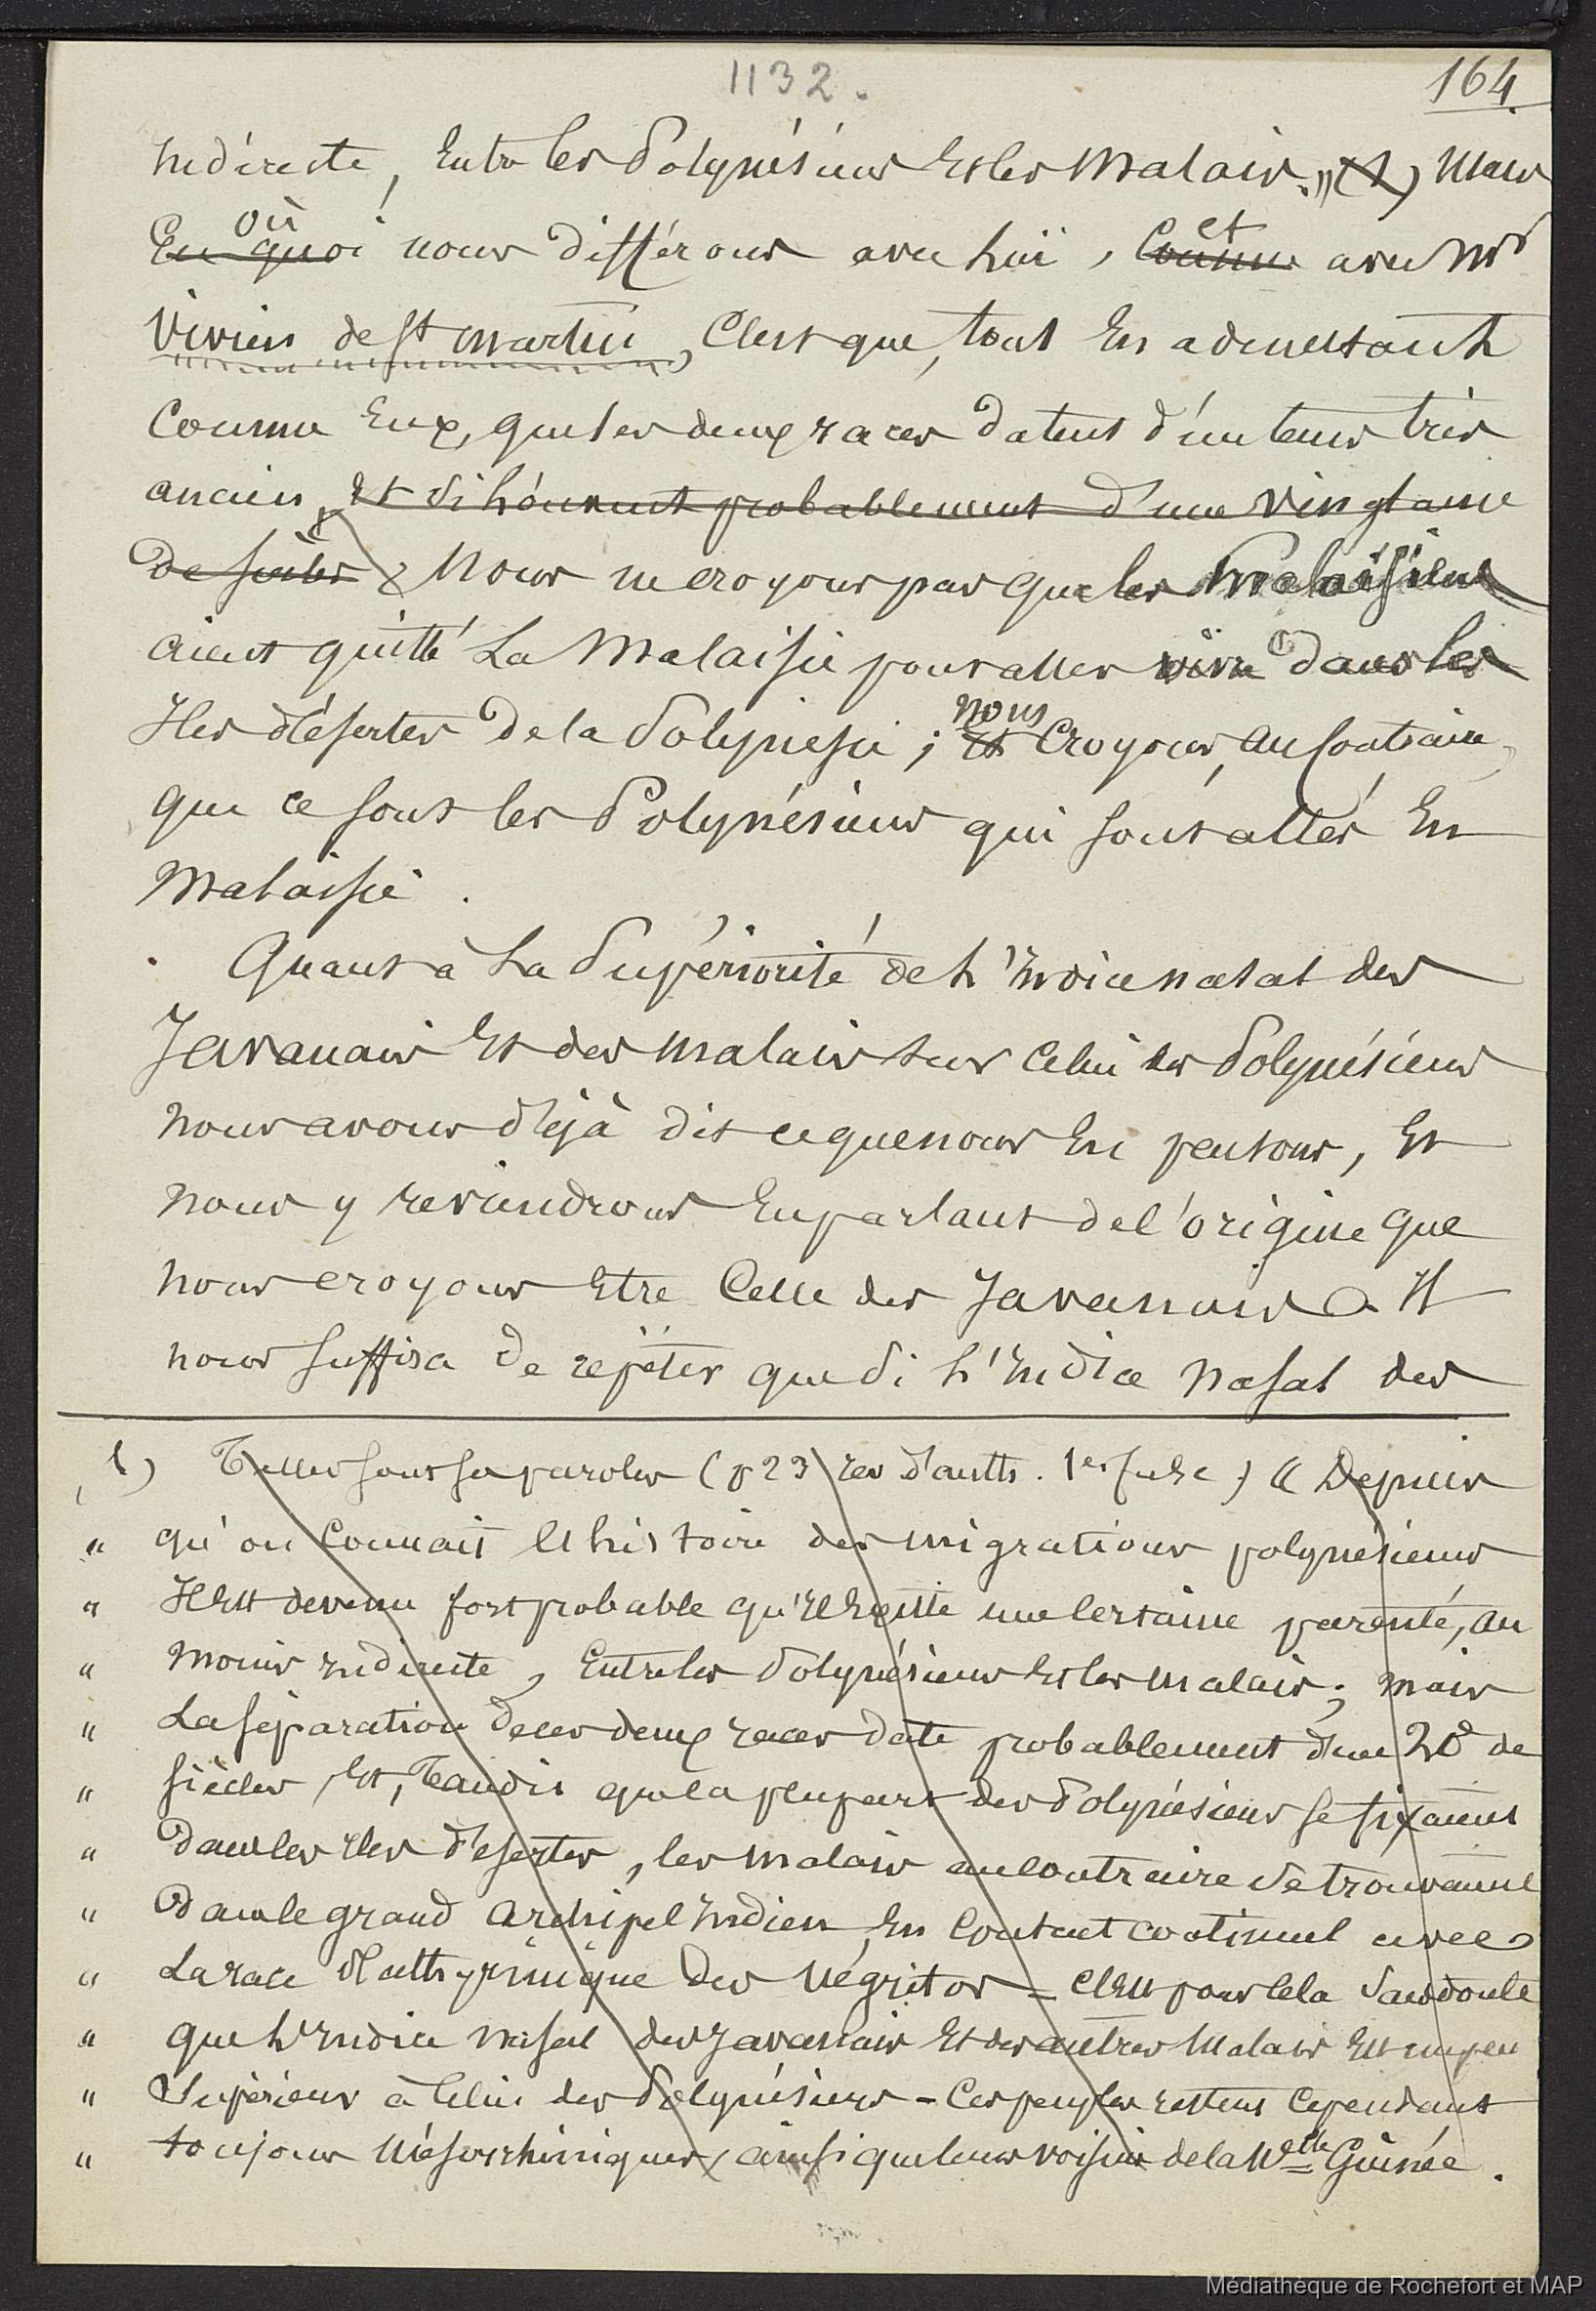 1132.
164.
Indirecte, Entre les Polynésiens Et les Malais." (1) Mais
où
En quoi nous différons avec lui, et Comme avec Mr
Vivien de St Martin, C'est que, tout En admettant
Comme Eux, que les deux races datent d'un tems très
ancien, Et Séhèvent probablement d'une vingtaine
de siècles, Nous ne croyons pas que les Malaisiens
aient quitté La Malaisie pour aller vivre dans les
Iles désertes de la Polynésie ; Et nous Croyons, au Contraire,
que ce sont les Polynésiens qui sont allés En
Malaisie.
Quant à La Supériorité de L'Indice nasal des
Javanais Et des Malais sur Celui des Polynésiens
nous avons déjà dit ce que nous En pensons, Et
nous y reviendrons En parlant de l'origine que
nous croyons Etre Celle des Javanais. Il
nous suffira de répéter que Si L'Indice Nasal des
1) Telles sont ses paroles (p 23 rev d'anth. 1er fasc.) « Depuis
" qu'on Connait l'histoire des migrations polynésiennes
" Il est devenu fort probable qu'il Existe une Certaine parenté, au
" moins Indirecte, Entre les Polynésiens Et les Malais ; mais
" La séparation de ces deux races date probablement d'une 20e de
" siècles, Et, Tandis que la plupart des Polynésiens se fixaient
" Dans les Iles désertes, les Malais au contraire Se trouvaient
" Dans le grand Archipel Indien En Contact continuel avec
" La race Platthyrinique des Négritos = C'est pour Cela Sans doute
" que L'Indice Nasal des Javanais Et des autres Malais Est un peu
" Supérieur à Celui des Polynésiens - Ces peuples restent Cependant
" toujours Mésorrhiniques, ainsi que leurs voisins de la Nelle Guinée.
Médiathèque de Rochefort et MAP